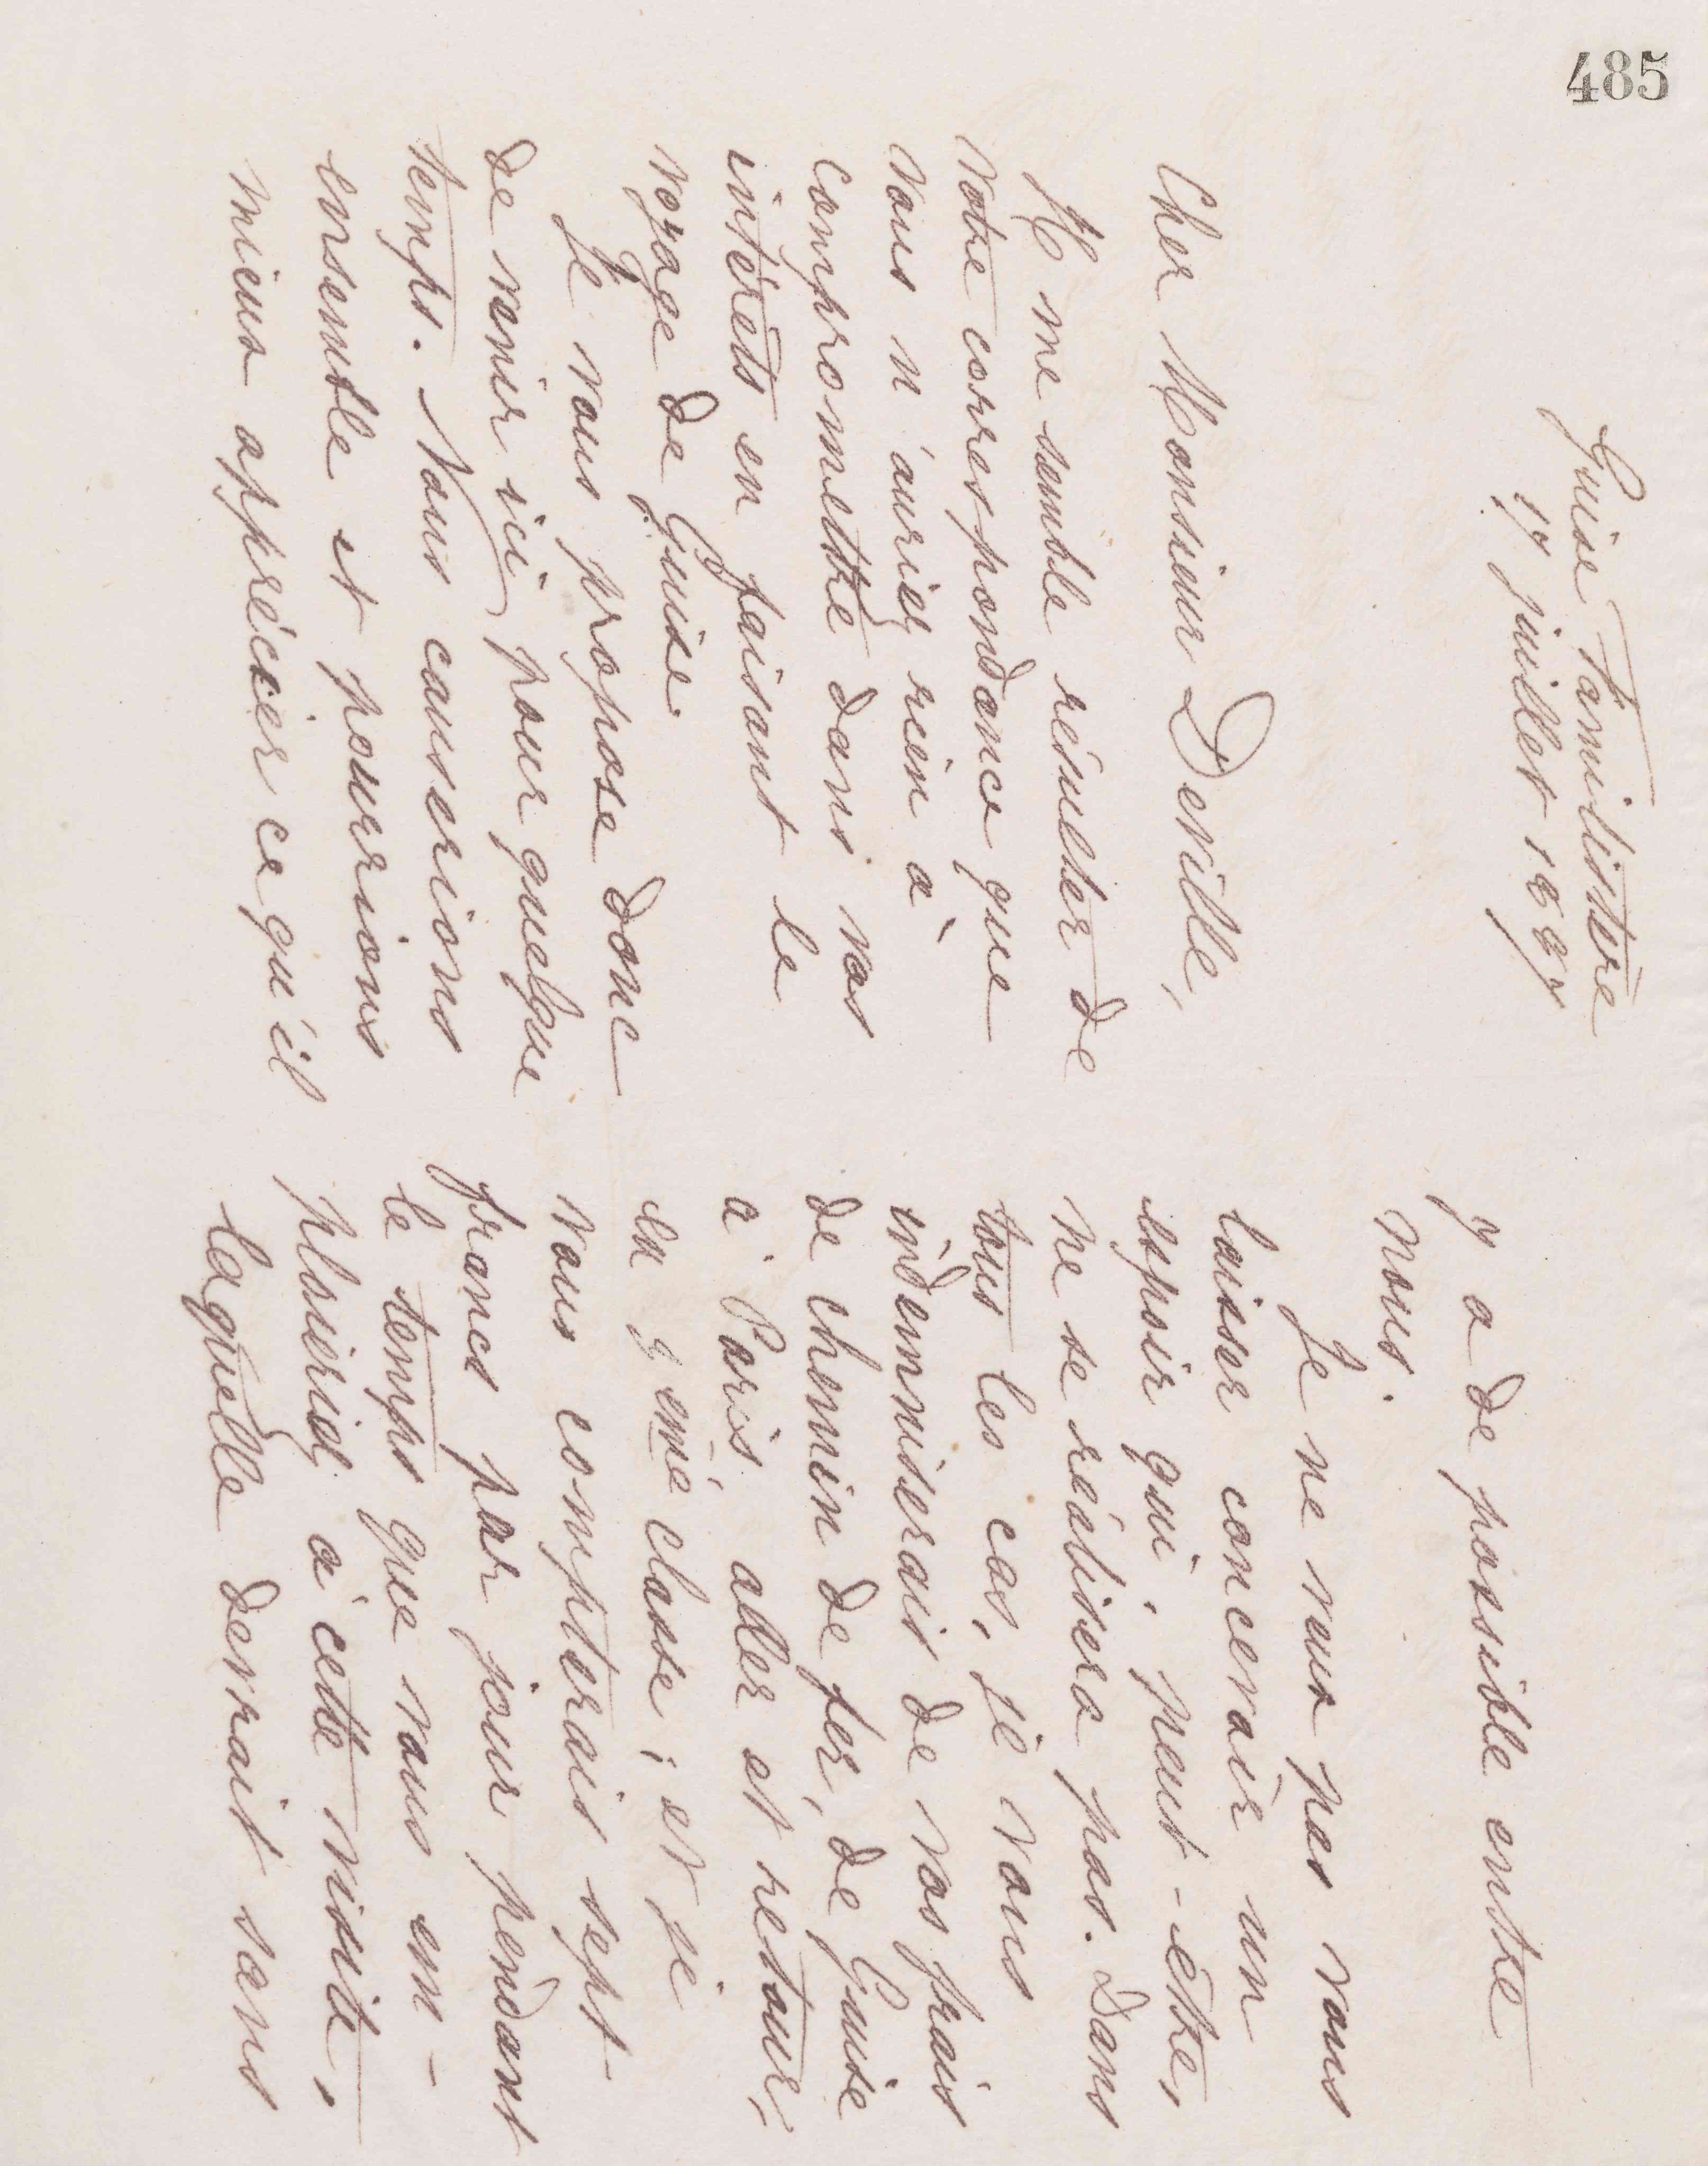 485
Guise Familistère
17 juillet 1887
Cher Monsieur Deville,
Il me semble résulter de
votre correspondance que
vous n'auriez rien à
compromettre dans vos
intérêts en faisant le
voyage de Guise.
Je vous propose donc
de venir ici pour quelque
temps. Nous causerions
ensemble et pourrions
mieux apprécier ce qu'il
y a de possible entre
nous.
Je ne veux pas vous
laisser concevoir un
espoir qui, peut-être,
ne se réalisera pas. Dans
tous les cas, je vous
indemniserais de vos frais
de chemin de fer, de Guise
à Paris aller et retour,
en 2eme classe; et je
vous compterais sept
francs par jour pendant
le temps que vous em-
ploieriez à cette visite,
laquelle devrait sans